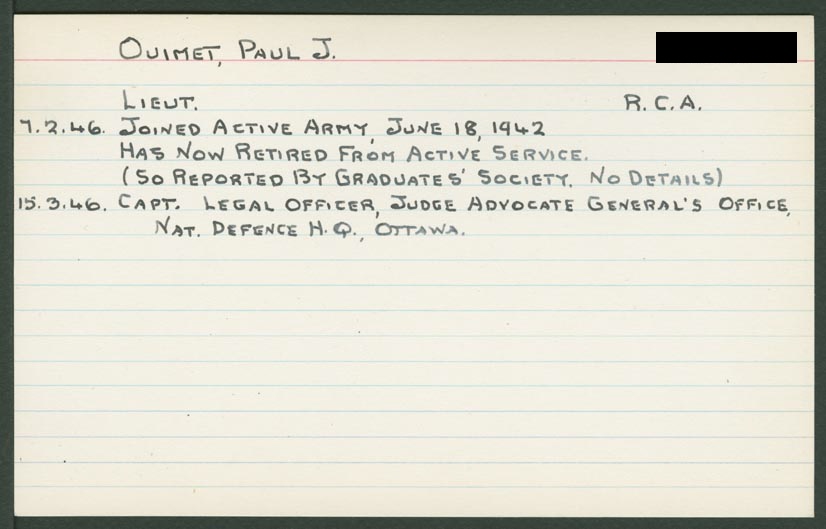 OUIMET, PAUL J.
LIEUT. R.C.A.
7.2.46. JOINED ACTIVE ARMY, JUNE 18, 1942
HAS NOW RETIRED FROM ACTIVE SERVICE.
(SO REPORTED BY GRADUATES' SOCIETY. NO DETAILS)
15.3.46. CAPT. LEGAL OFFICER, JUDGE ADVOCATE GENERAL'S OFFICE,
NAT. DEFENCE H.Q., OTTAWA.